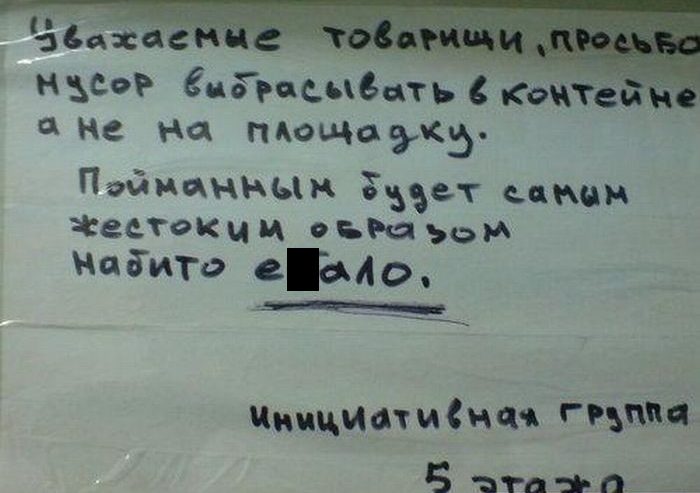 Уважаемые товарищи, просьба
мусор выбрасывать в контейне
а не на площадку.
Пойманным будет самым
жестоким образом
набито е ало.
Инициативная группа
5 этажа